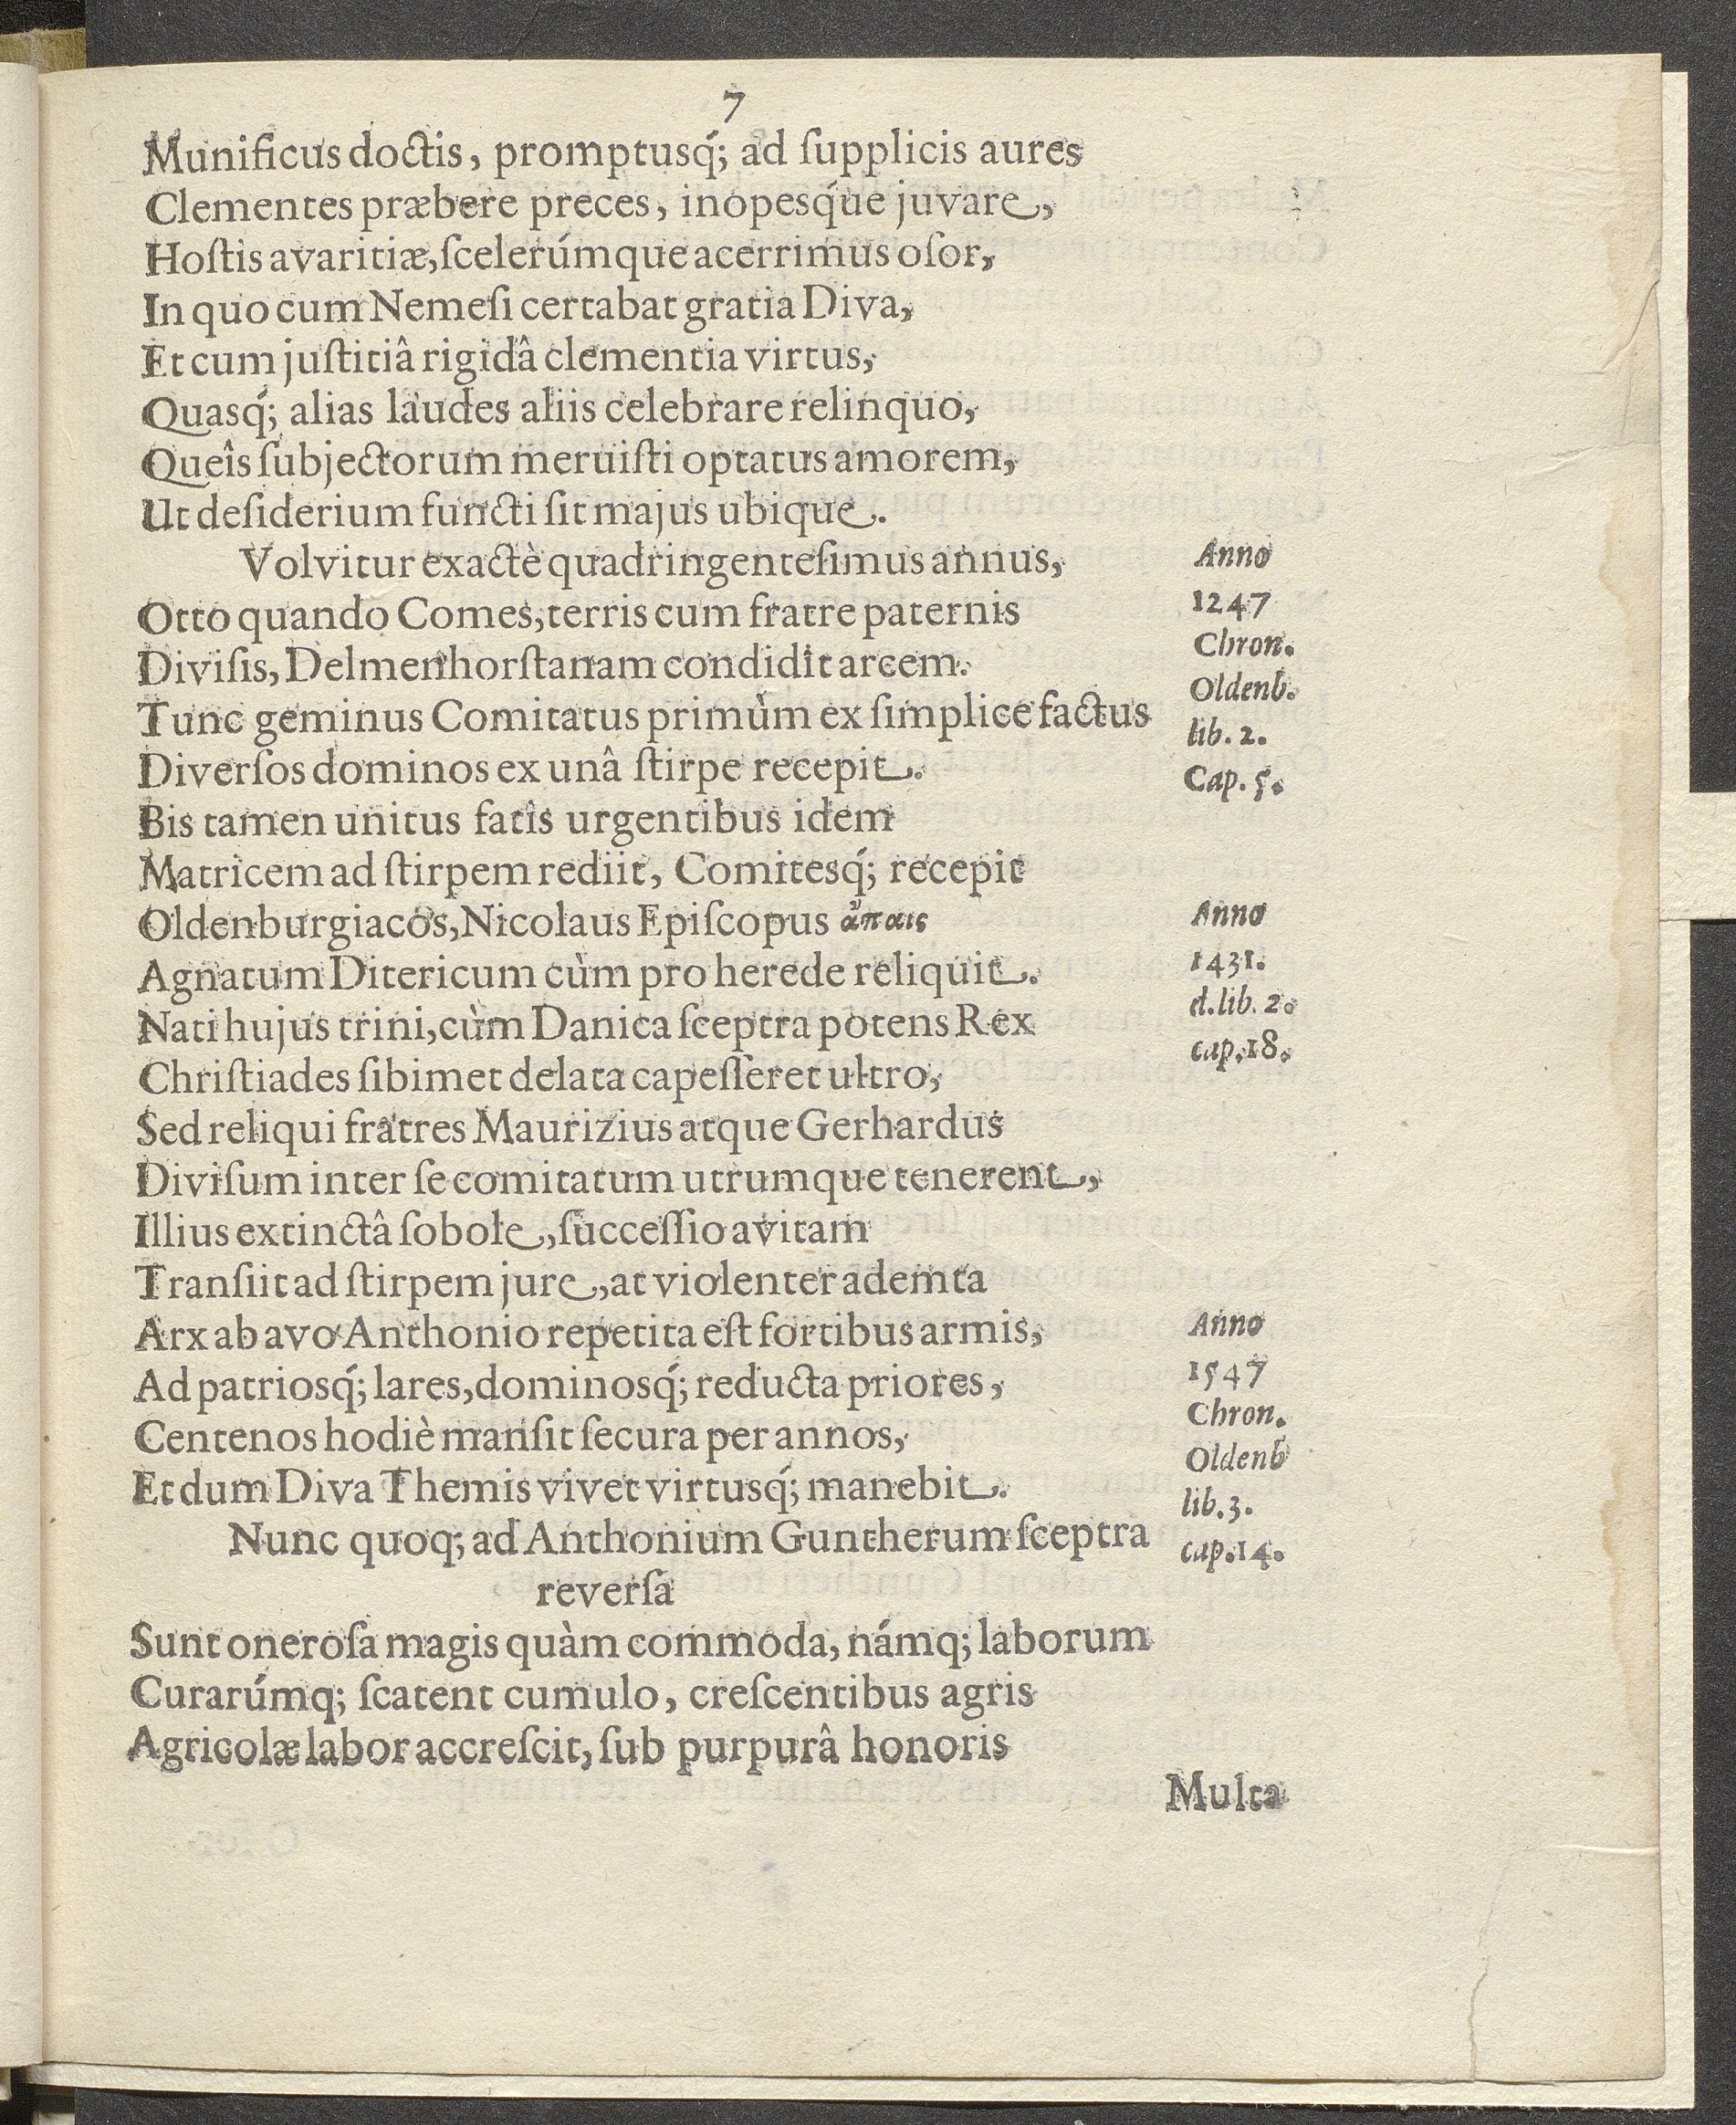 7
Munificus doctis, promptusq́; ad ſupplicis aures
Clementes præbere preces, inopesq́ue juvare,
Hoſtis avaritiæ, ſcelerúmque acerrimus oſor,
In quo cum Nemeſi certabat gratia Diva,
Et cum juſtitiâ rigidâ clementia virtus,
Quasq́; alias laudes aliis celebrare relinquo,
Queîs ſubjectorum meruiſti optatus amorem,
Ut deſiderium functi ſit majus ubique.
Volvitur exactè quadringenteſimus annus,
Otto quando Comes, terris cum fratre paternis
Diviſis, Delmenhorſtanam condidit arcem.
Tunc geminus Comitatus primùm ex ſimplice factus
Diverſos dominos ex unâ ſtirpe recepit.
Anno
1247
Chron.
Oldenb.
lib. 2.
Cap. 5.
Bis tamen unitus fatis urgentibus idem
Matricem ad ſtirpem rediit, Comitesq́; recepit
Oldenburgiacos, Nicolaus Epiſcopus ἄπαις
Agnatum Ditericum cùm pro herede reliquit.
Nati hujus trini, cùm Danica ſceptra potens Rex
Chriſtiades ſibimet delata capeſſeret ultro,
Anno
1431.
d. lib. 2.
cap. 18.
Sed reliqui fratres Maurizius atque Gerhardus
Diviſum inter ſe comitatum utrumque tenerent,
Illius extinctâ ſobole, ſucceſſio avitam
Tranſiit ad ſtirpem jure, at violenter ademta
Arx ab avo Anthonio repetita eſt fortibus armis,
Ad patriosq́; lares, dominosq́; reducta priores,
Centenos hodiè manſit ſecura per annos,
Et dum Diva Themis vivet virtusq́; manebit.
Anno
1547
Chron.
Oldenb
lib. 3.
cap. 14.
Nunc quoq; ad Anthonium Guntherum ſceptra
reverſa
Sunt oneroſa magis quàm commoda, námq; laborum
Curarúmq; ſcatent cumulo, creſcentibus agris
Agricolæ labor accreſcit, ſub purpurâ honoris
Multa